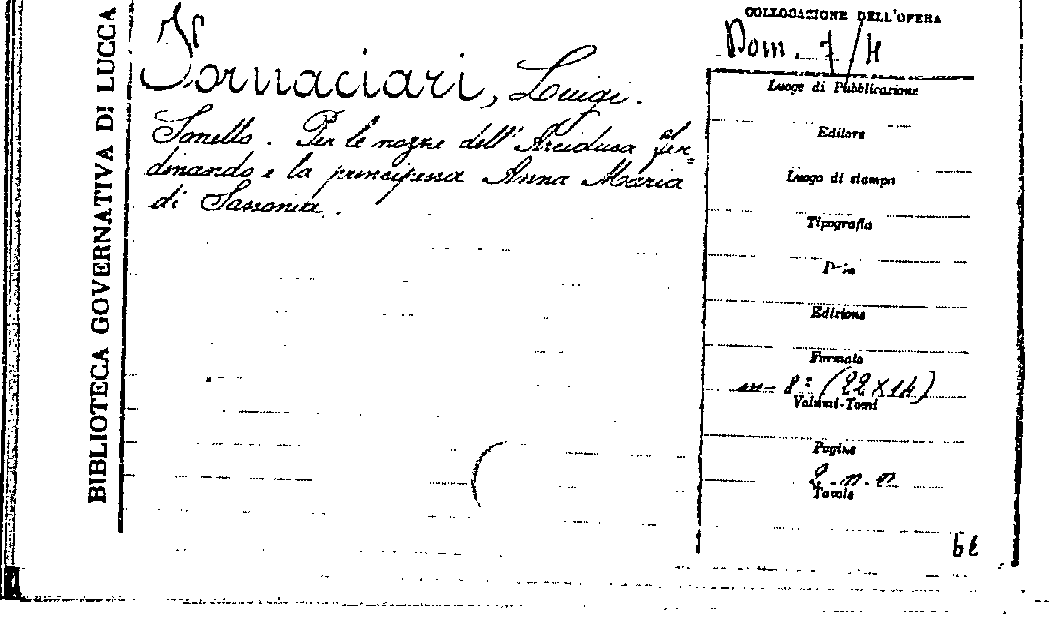 BIBLIOTECA GOVERNATIVA DI LUCCA
Fornaciari, Luigi.
Sonetto. Per le nozze dell'Arciduca Fer=
dinando e la principessa Anna Maria
di Sassonia.
COLLOCAZIONE DELL'OPERA
Dom. 7/4
Luogo di Pubblicazione
Editore
Luogo di stampa
Tipografia
Edizione
Formato
in-8° (22x14)
Volumi-Tomi
Pagine
2 n.n
Tavole